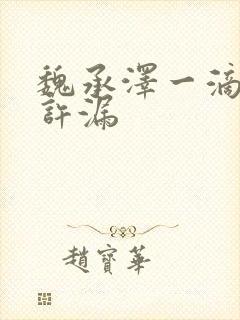 魏承澤一滴
許漏
趙寶華